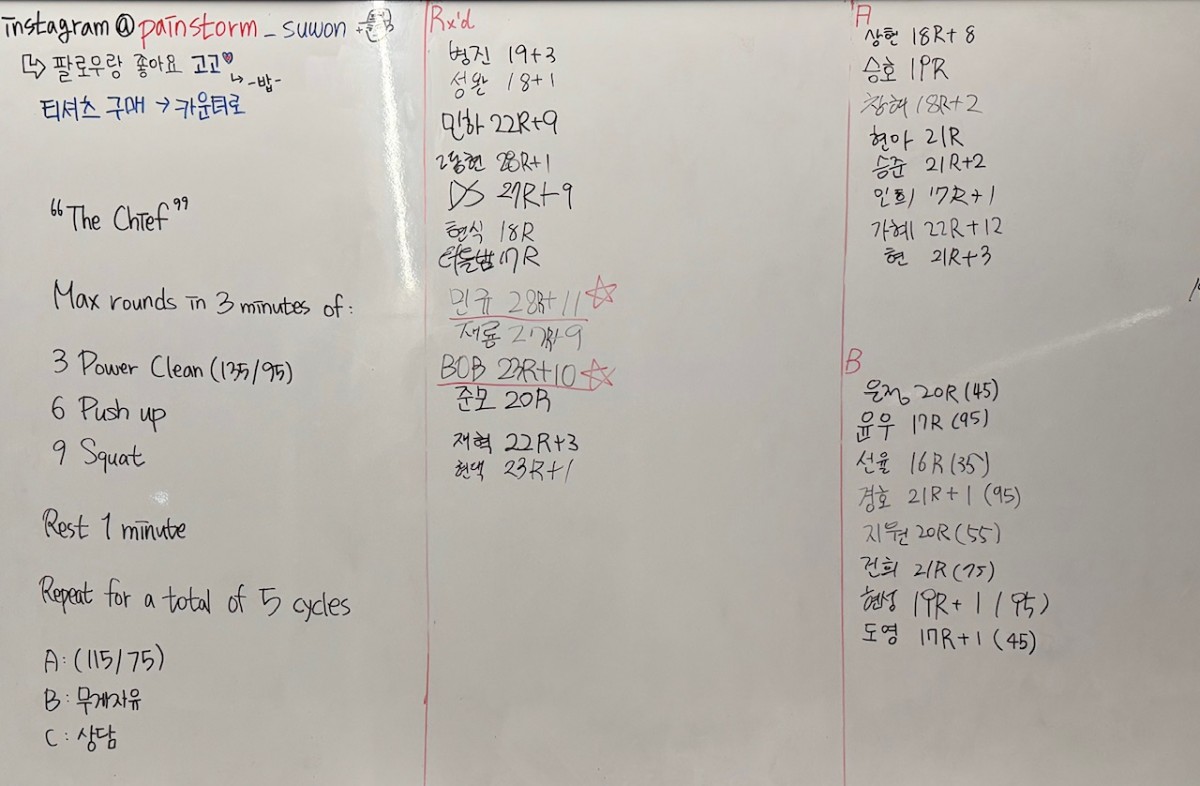 instagram@painstorm_suwon
↳ 팔로우랑 좋아요 고고♥
↳ -밥-
티셔츠 구매 → 카운터로
"The Chief"
Max rounds in 3 minutes of:
3 Power Clean (135/95)
6 Push up
9 Squat
Rest 1 minute
Repeat for a total of 5 cycles
A: (115/75)
B: 무게자유
C: 상담
Rx'd
병진 19+3
성완 18+1
민하 22R+9
28R+1
DS 27R+9
현식 18R
17R
민규 28R+11 ☆
재룡 27R+9
BOB 23R+10 ☆
준모 20R
재혁 22R+3
현택 23R+1
A
상현 18R+8
승호 19R
18R+2
현아 21R
승준 21R+2
민희 17R+1
가혜 22R+12
현 21R+3
B
은정 20R (45)
윤우 17R (95)
선율 16R (35)
경호 21R+1 (95)
지원 20R (55)
건희 21R (75)
현성 19R+1 (95)
도영 17R+1 (45)